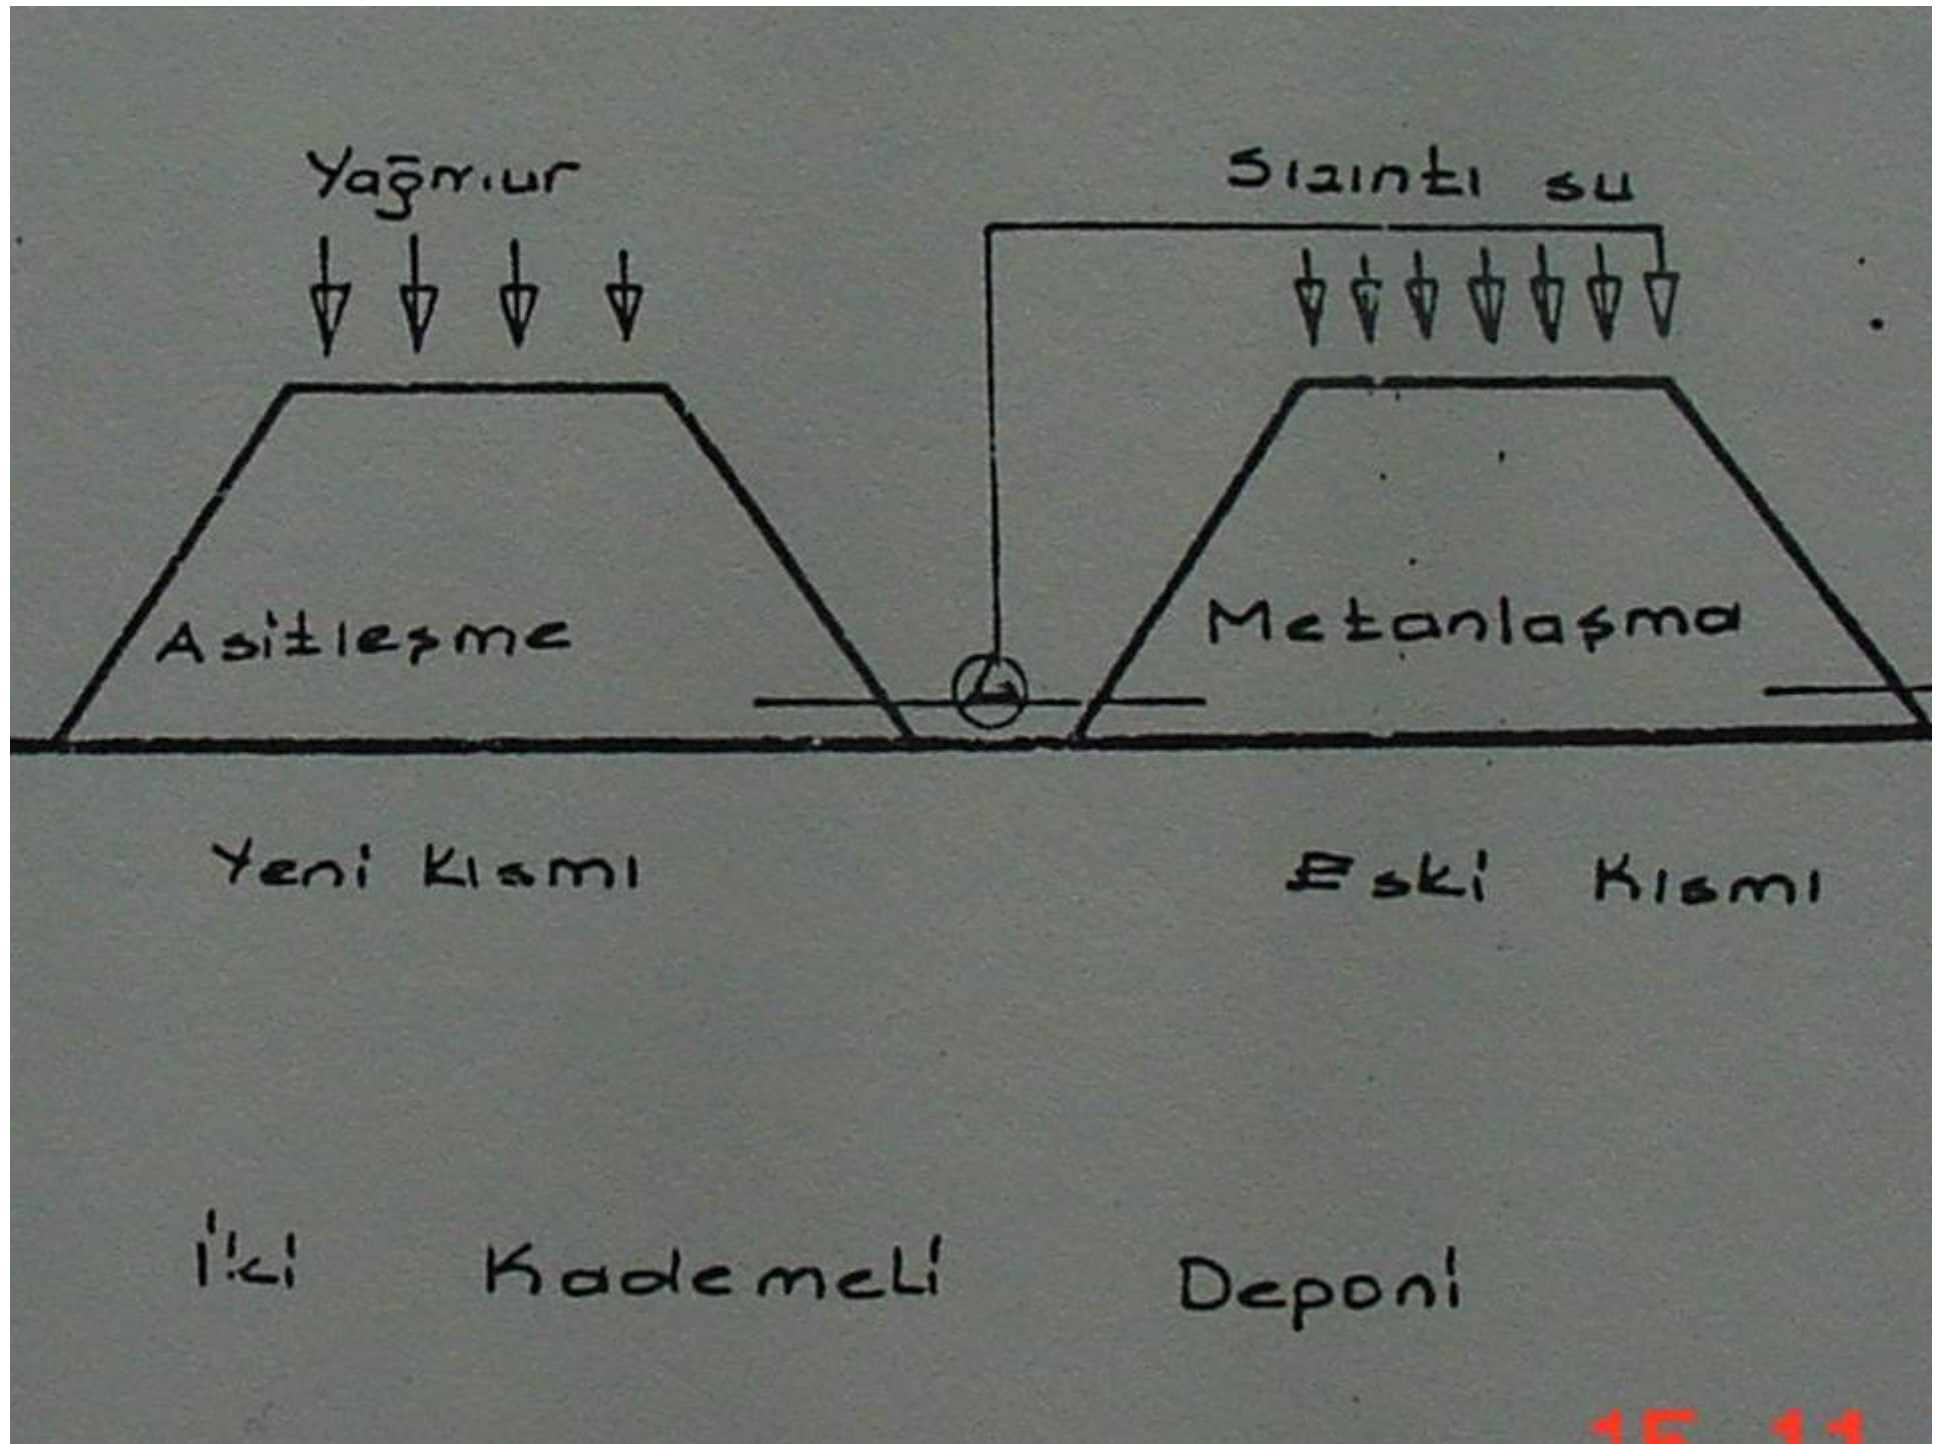 Yağmur
Sızıntı su
Asitleşme
Metanlaşma
Yeni Kısmı
Eski Kısmı
İki Kademeli Deponi